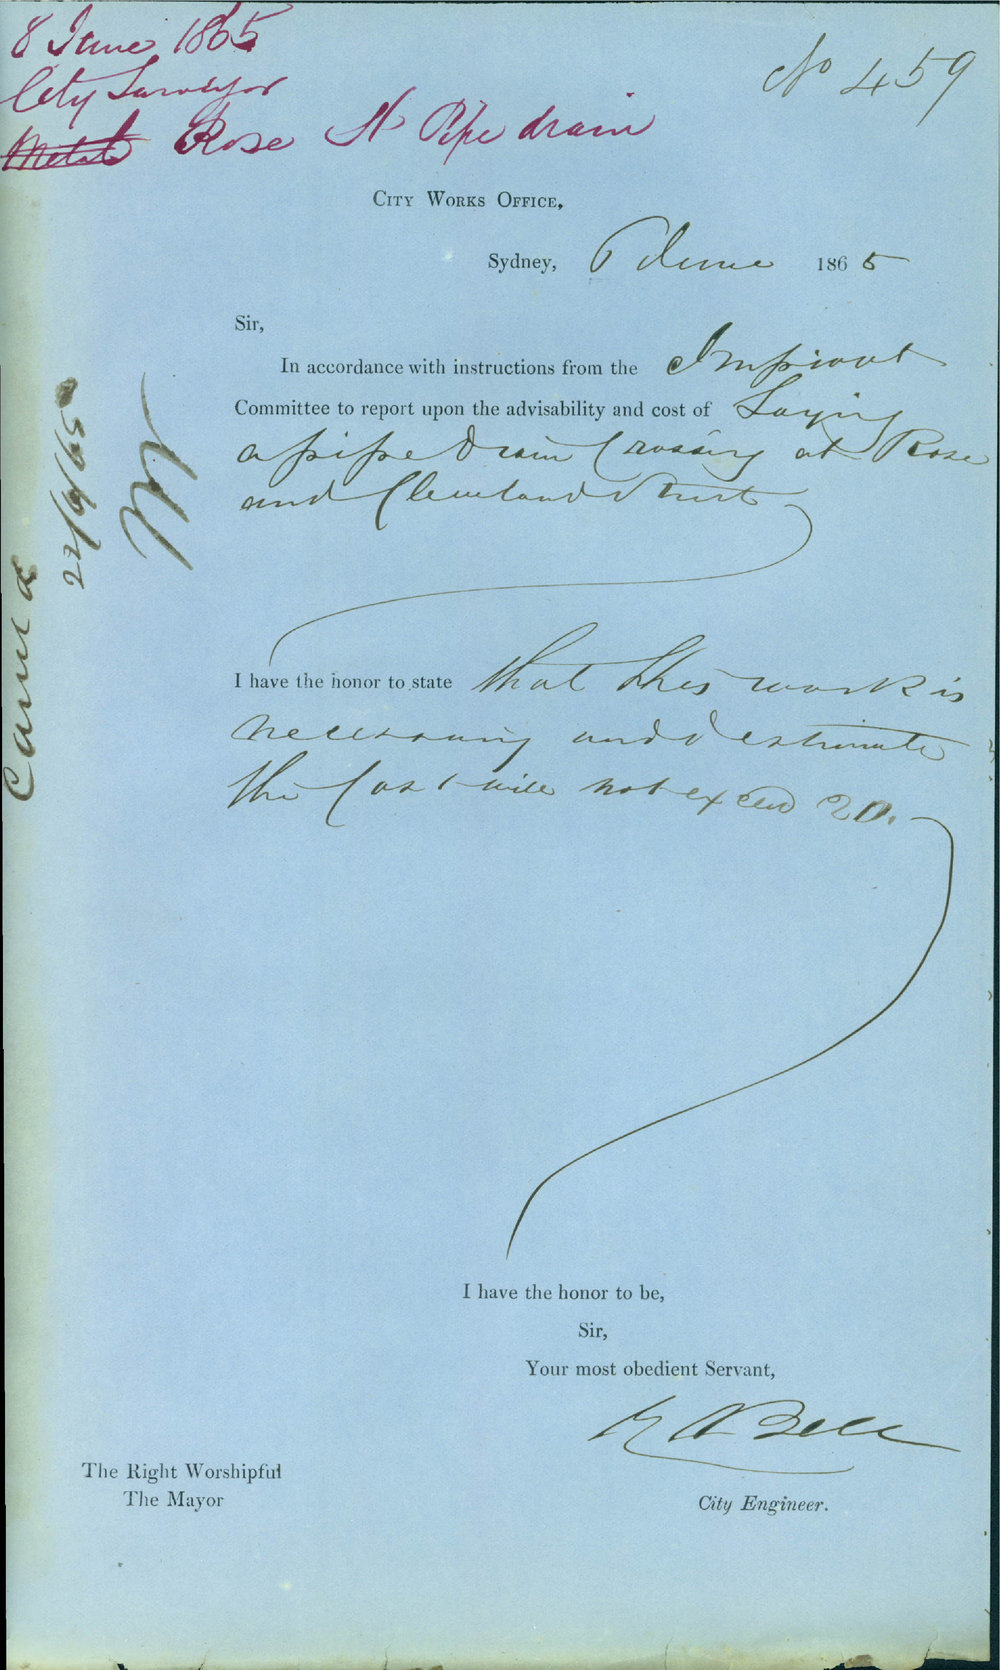 8 June 1865
No 459
City Surveyor
Rose St Pipe drain
City Works Office,
Sydney, 6 June 1865
Sir,
In accordance with instructions from the Improvt
Committee to report upon the advisability and cost of Laying
a pipe drain Crossing at Rose
and Cleveland Streets
I have the honor to state that this work is
necessary and I estimate
the Cost will not exceed 20.
I have the honor to be,
Sir,
Your most obedient Servant,
Bell
The Right Worshipful
The Mayor
City Engineer.
22/6/65